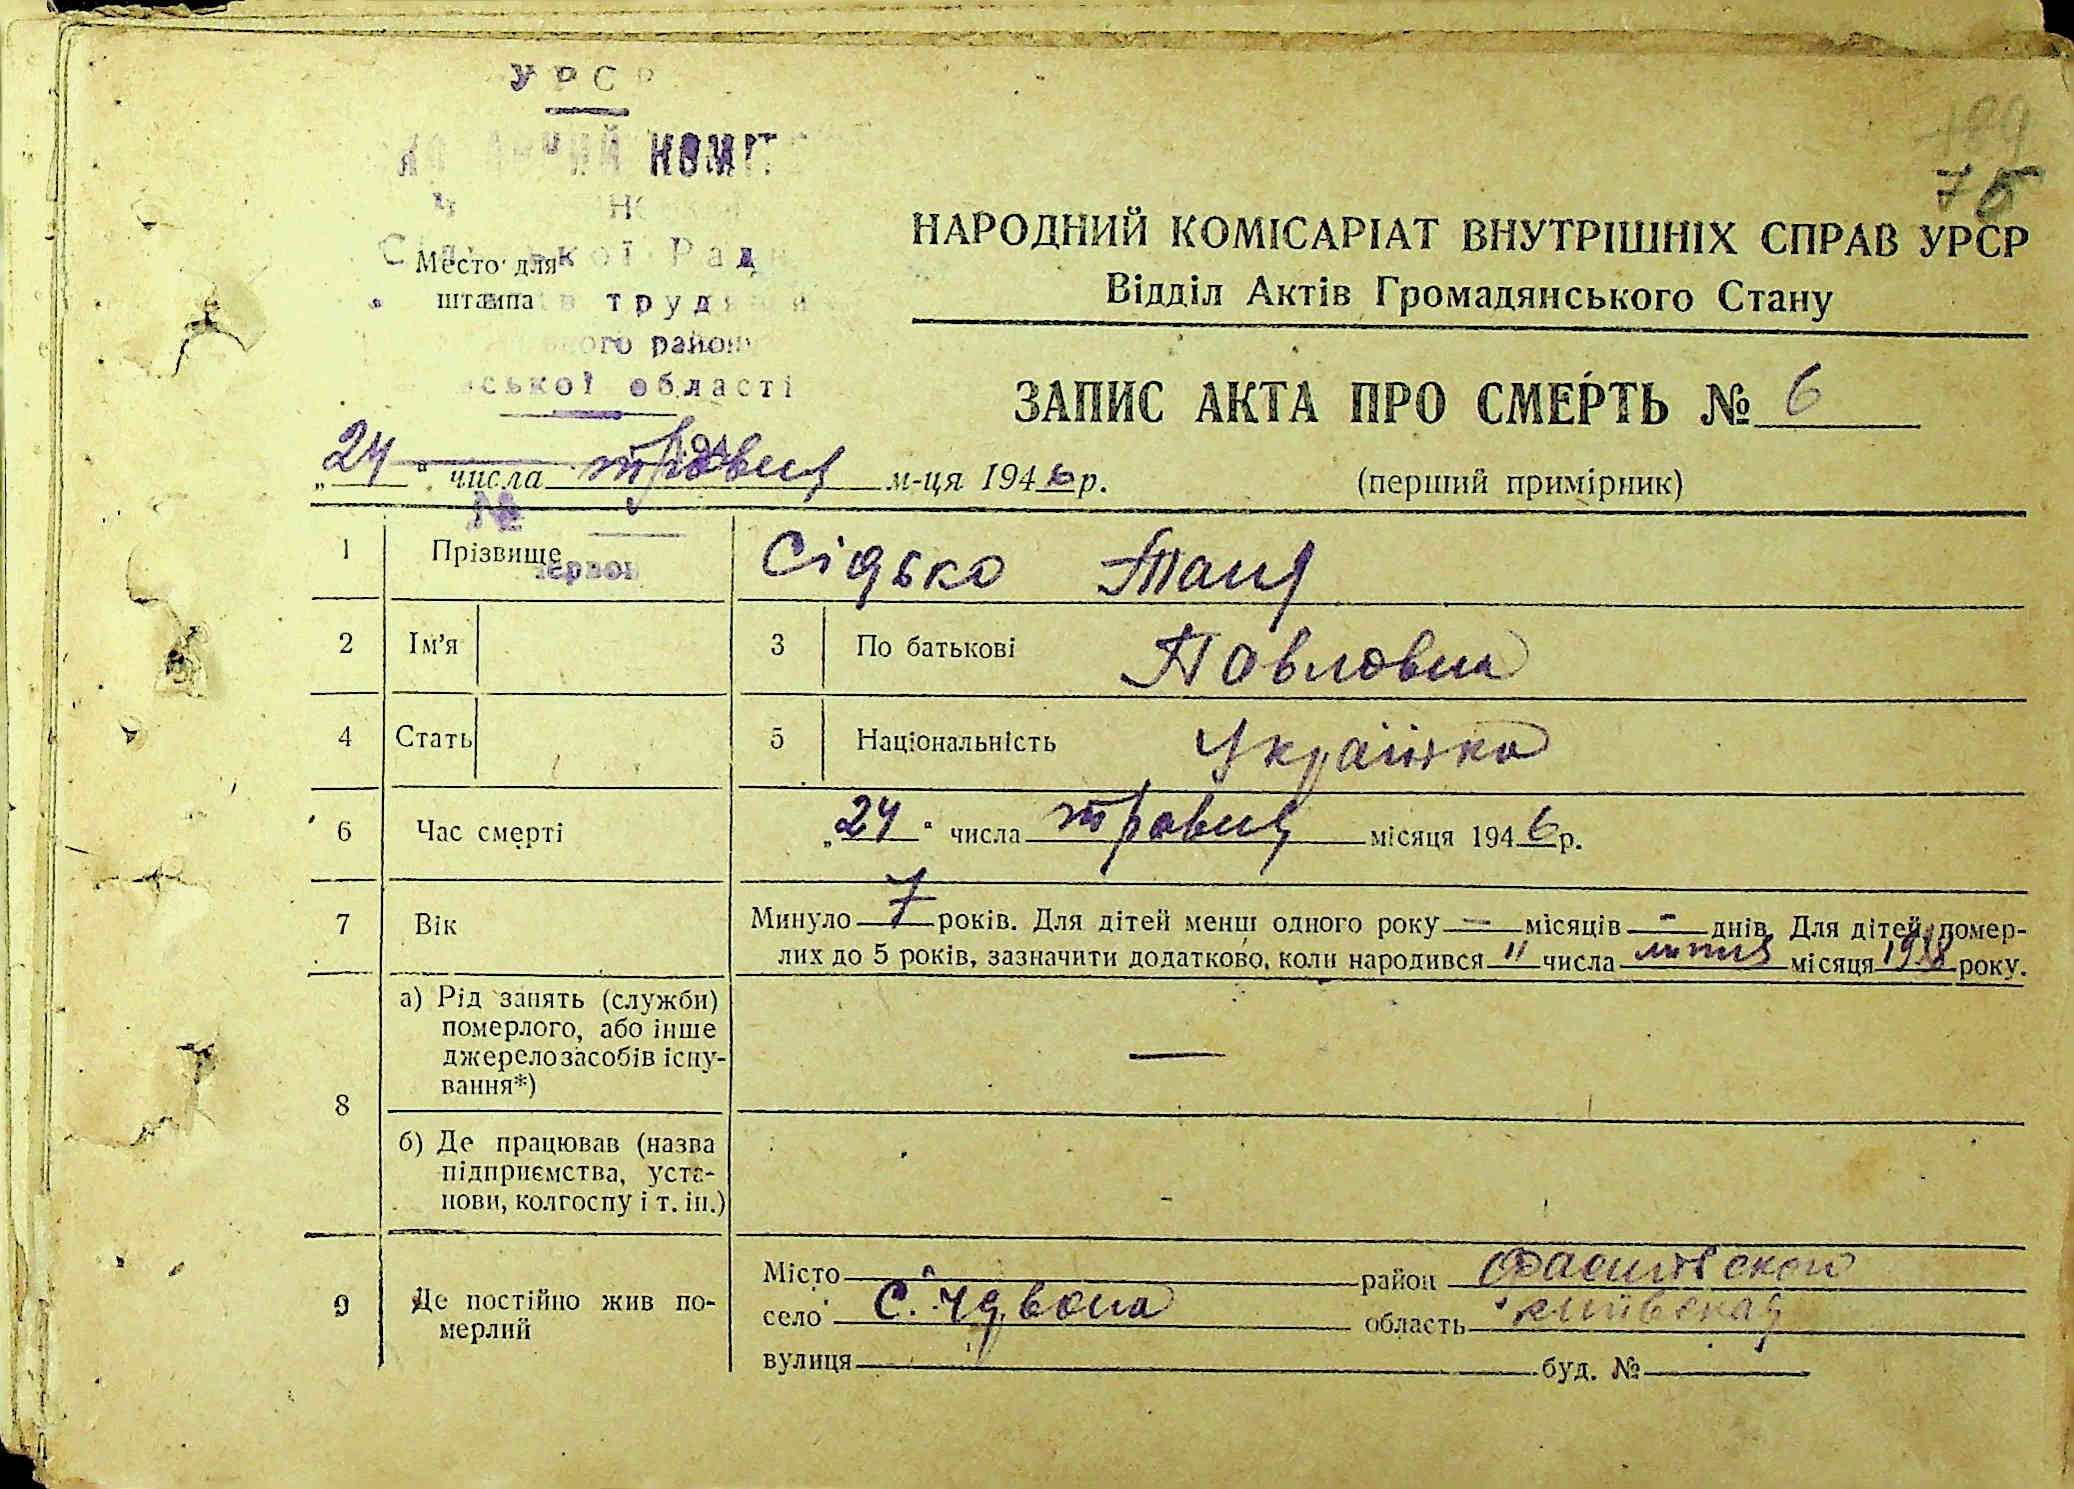 УРСР
КОМІТ
189
75
НАРОДНИЙ КОМІСАРІАТ ВНУТРІШНІХ СПРАВ УРСР
Сільської Рад
Место для
штампа
трудящи
Відділ Актів Громадянського Стану
ого району
ської області
ЗАПИС АКТА ПРО СМЕРТЬ № 6
„24“ числа травня м-ця 1946 р.
(перший примірник)
№
1 Прізвище Сідько Таня
2 Ім'я
3 По батькові Павловна
4 Стать
5 Національність Українка
6 Час смерті „24“ числа травня місяця 1946 р.
7 Вік Минуло 7 років. Для дітей менш одного року — місяців — днів. Для дітей, помер-
лих до 5 років, зазначити додатково, коли народився 11 числа місяця 1938 року.
8 а) Рід занять (служби)
померлого, або інше
джерело засобів існу-
вання*) —
б) Де працював (назва
підприємства, уста-
нови, колгоспу і т. ін.)
9 Де постійно жив по-
мерлий
Місто район Фастівской
село с. область київская
вулиця буд. №